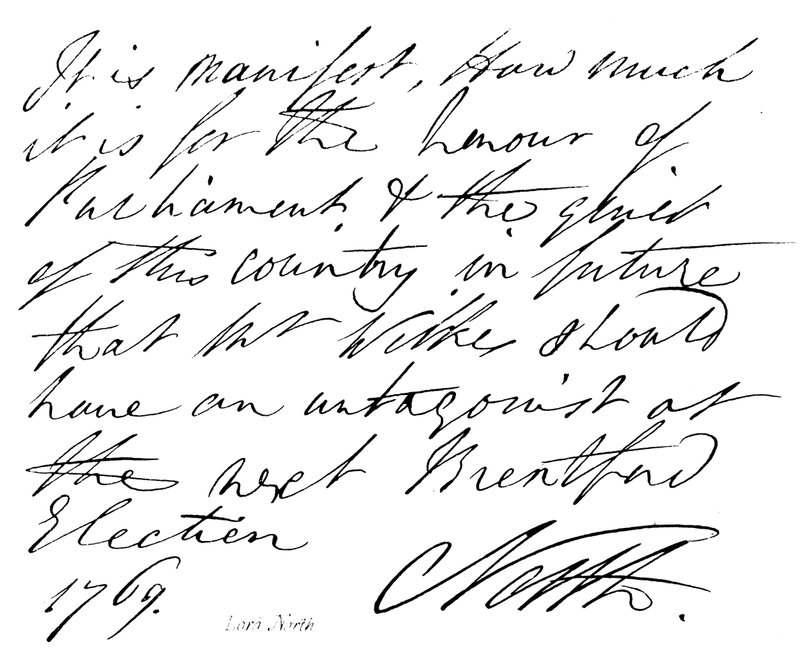 It is manifest, How much
it is for the honour of
Parliament, & the quiet
of this country in future
that Mr Wilkes should
have an antagonist at
the next Brentford
Election
1769.
North.
Lord North